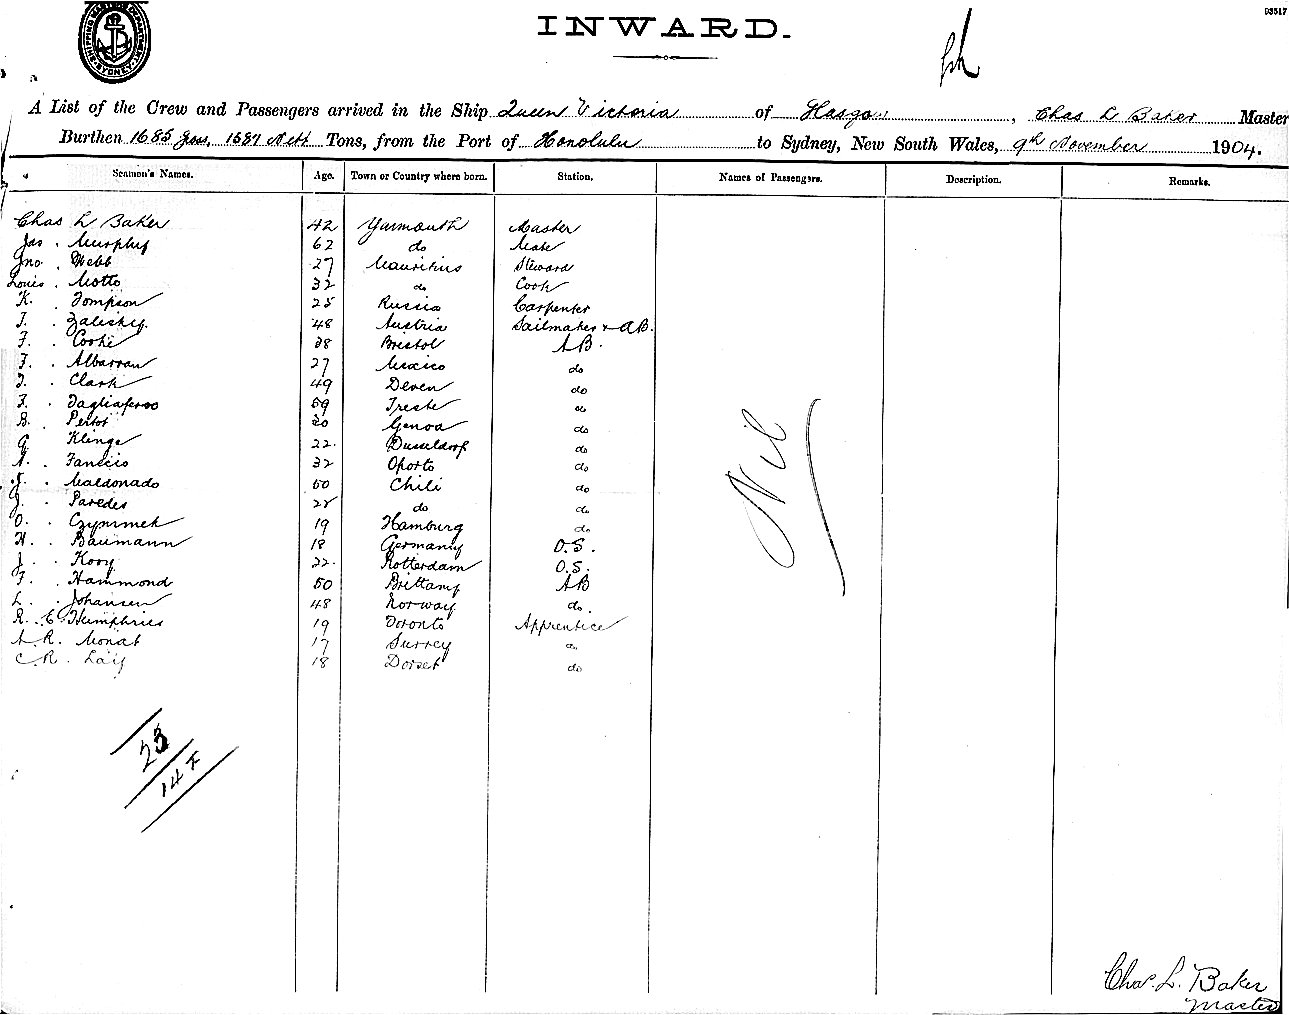 SHIPPING MASTER'S DEPARTMENT SYDNEY
INWARD.
03517
A List of the Crew and Passengers arrived in the Ship Queen Victoria of Glasgow, Chas L Baker Master
Burthen 1685 Gross, 1587 Nett Tons, from the Port of Honolulu to Sydney, New South Wales, 9th November 1904.
Seamen's Names. Age. Town or Country where born. Station. Names of Passengers. Description. Remarks.
Chas L Baker 42 Yarmouth Master
Jas. Murphy 62 do Mate
Jno. Webb 27 Mauritius Steward
Louis. Motto 32 do Cook
K. Tompson 25 Russia Carpenter
T. Zaleskey 48 Austria Sailmaker + AB.
F. Cooke 38 Bristol AB.
F. Albarran 27 Mexico do
T. Clark 49 Deven do
F. Tagliaferro 59 Treste do
B. Pertot 20 Genoa do
G. Klinge 22. Dusseldorf do
A. Fanecio 32 Oporto do
J. Maldonado 50 Chili do
J. Paredes 25 do do
O. Czymmek 19 Hamburg do
H. Baumann 18 Germany O.S.
J. Kooy 22. Rotterdam O.S.
F. Hammond 50 Brittany AB
L. Johansen 48 Norway do.
R. E. Humphries 19 Toronto Apprentice
A. R. Monat 17 Surrey do
C. R. Lay 18 Dorset do
Nil
23
14 F
Chas. L. Baker
Master